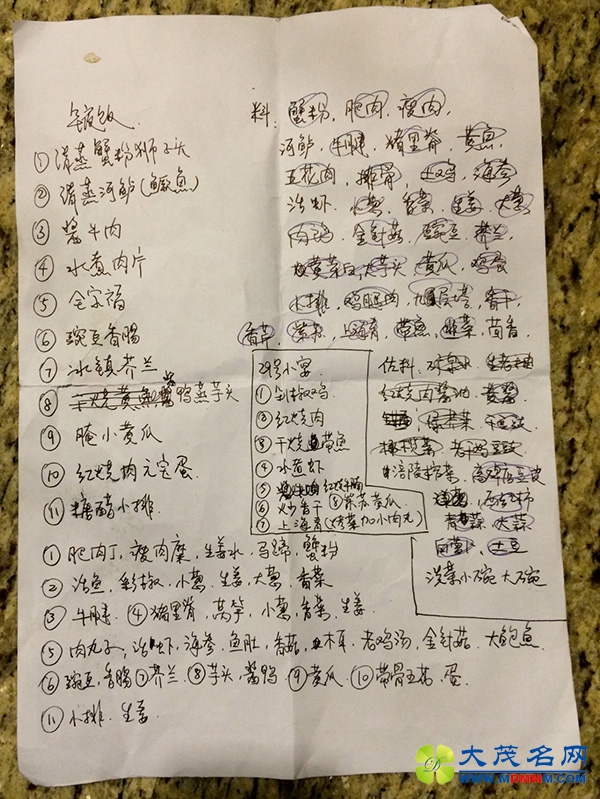 年夜饭
①清蒸蟹粉狮子头
②清蒸河鲈(鳜鱼)
③酱牛肉
④水煮肉片
⑤全家福
⑥豌豆香肠
⑦冰镇芥兰
⑧干烧黄鱼 酱鸭蒸芋头
⑨腌小黄瓜
⑩红烧肉元宝蛋
⑪糖醋小排
料:蟹粉,肥肉,瘦肉,
河鲈,牛腱,猪里脊,黄鱼,
五花肉,排骨,土鸡,海参
活虾,小葱,香菜,生姜,大葱
肉鸡,金针菇,豌豆,芥兰,
大芋头,黄瓜,鸡蛋
小排,鸡腿肉,九层塔,香干,
香草,紫苏,上海青,带鱼,韭菜,茴香,
29号小宴
①剁椒鸡
②红烧肉
③干烧带鱼
④水煮虾
⑤红烧牛腩
⑥炒香干 ⑧紫苏黄瓜
⑦上海青(烤菜加小肉丸)
佐料,
红烧肉酱油,黄酱
橄榄菜,老干妈豆豉
涪陵榨菜,高碑店豆皮
洋葱,西红柿
青蒜,大蒜
白萝卜,土豆
洗菜小碗大碗
①肥肉丁,瘦肉糜,生姜水,马蹄,蟹粉
②活鱼,彩椒,小葱,生姜,大葱,香菜
③牛腱.④猪里脊,莴笋,小葱,香菜,生姜
⑤肉丸子,活虾,海参,鱼肚,香菇,木耳,老鸡汤,金针菇,大鲍鱼
⑥豌豆,香肠⑦芥兰⑧芋头,酱鸭⑨黄瓜.⑩带骨五花,蛋.
⑪小排.生姜
大茂名网
WWW.MDMMM.COM